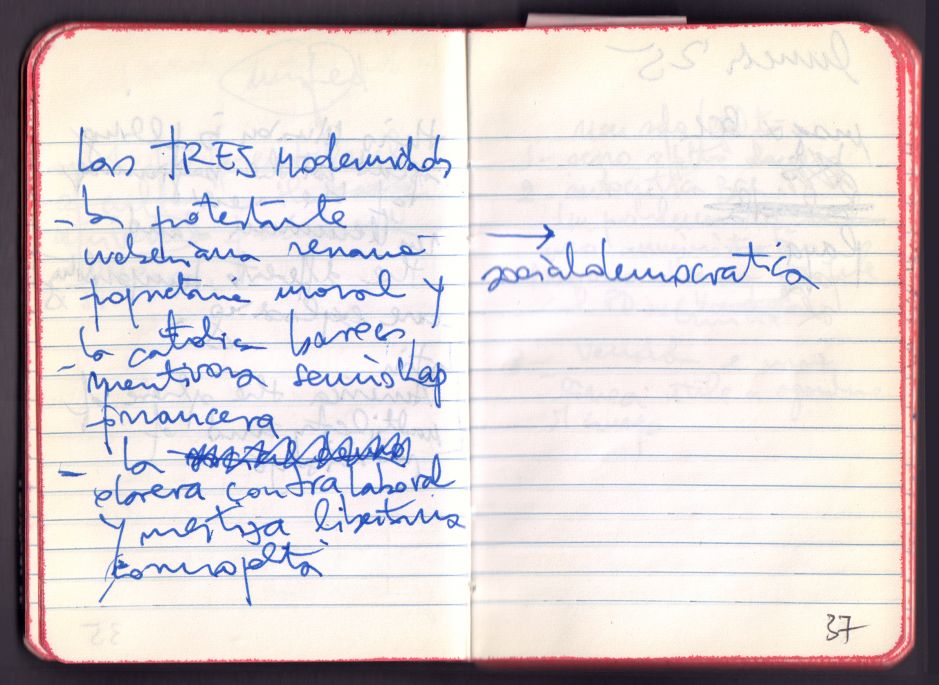 Las TRES modernidades
- la protestante
weberiana renana
propietaria moral y
- la católica barroca
mentirosa semioKap
financera
- la
obrera contralaboral
y mestiza libertaria
→
socialdemocratica
37